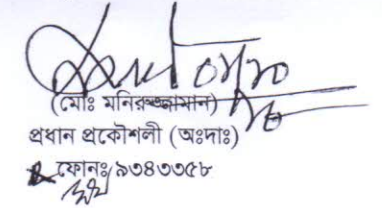 (মোঃ মনিরুজ্জামান)
প্রধান প্রকৌশলী (অঃদাঃ)
ফোনঃ ৯৩৪৩৩৫৮